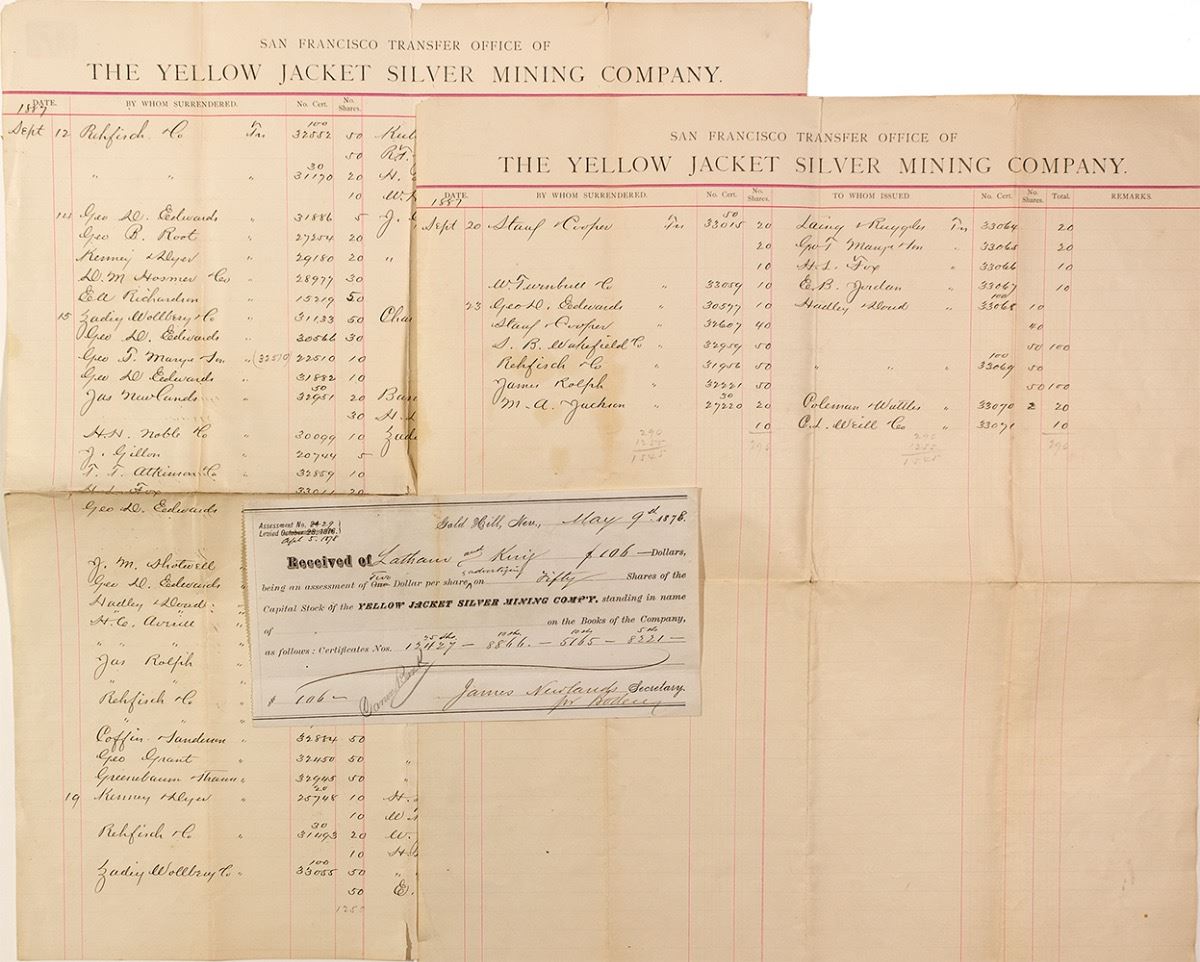 SAN FRANCISCO TRANSFER OFFICE OF
THE YELLOW JACKET SILVER MINING COMPANY.
DATE. BY WHOM SURRENDERED. No. Cert. No. Shares.
1887
100
Sept 12 Rehfisch & Co Trs 32552 50
50 R.T.
30
" " " 31170 20 H.
10 W.
14 Geo D. Eedwards " 31886 5 J.
Geo B. Root " 27254 20
Kenney & Dyer " 29180 20 "
D. M Hosmer & Co " 28977 30
EA Richardson " 15219 50
15 Zadig Wollberg & Co " 31133 50 Chas
Geo D. Eedwards " 30566 30
Geo T. Marye & Son " (32510) 22510 10
Geo D Eedwards " 31882 10
50
Jas Newlands " 32951 20
30 H.
H. N. Noble & Co " 30099 10 Zadi
J. Gillon " 20744 5
T. T. Atkinson & Co " 32859 10
H L Fox 20
Geo D. Eedwards
J. M. Shotwell "
Geo D. Eedwards "
Hadley & Doud "
H. Co. Averill "
" " "
Jas Rolph "
" "
Rehfisch & Co "
" "
Coffin & Sanderson " 32884 50
Geo Grant " 32450 50 "
Greenebaum & Strauss " 32945 50 "
20
19 Kenney & Dyer " 25748 10 H.
10 W.
30
Rehfisch & Co " 31493 20 W.
10 H.
100
Zadig Wollberg Co " 33055 50 "
50 E.
1255
SAN FRANCISCO TRANSFER OFFICE OF
THE YELLOW JACKET SILVER MINING COMPANY.
DATE. BY WHOM SURRENDERED. No. Cert. No. Shares. TO WHOM ISSUED No. Cert. No. Shares. Total. REMARKS.
1887
50
Sept 20 Stauf & Cooper Trs 33015 20 Laing & Ruggles Trs 33064 20
20 Geo T Marye & Son " 33065 20
10 H. L. Fox " 33066 10
W Turnbull & Co " 33059 10 E. B. Jordan " 33067 10
100
23 Geo D. Eedwards " 30597 10 Hadley & Doud " 33068 10
Stauf & Cooper " 32607 40 40
S. B. Wakefield & Co " 32959 50 50 100
100
Rehfisch & Co " 31956 50 " " " 33069 50
James Rolph " 32221 50 50 100
30
M. A. Jackson " 27220 20 Coleman & Wattles " 33070 2 20
10 C. L. Weill & Co " 33071 10
290 290 290 290
1255 1255
1545 1545
Assessment No. 24 29
Levied October 28, 1876.
Apl 5. 1878
Gold Hill, Nev., May 9th 1878.
Received of Latham and King $106 — Dollars,
Two & advertising
being an assessment of One Dollar per share, on Fifty Shares of the
Capital Stock of the YELLOW JACKET SILVER MINING COMP'Y. standing in name
of on the Books of the Company,
25 shs. 10 shs 10 shs 5 shs
as follows: Certificates Nos. 12427 — 8866 — 5165 — 8221 —
$ 106 —
James Newlands Secretary.